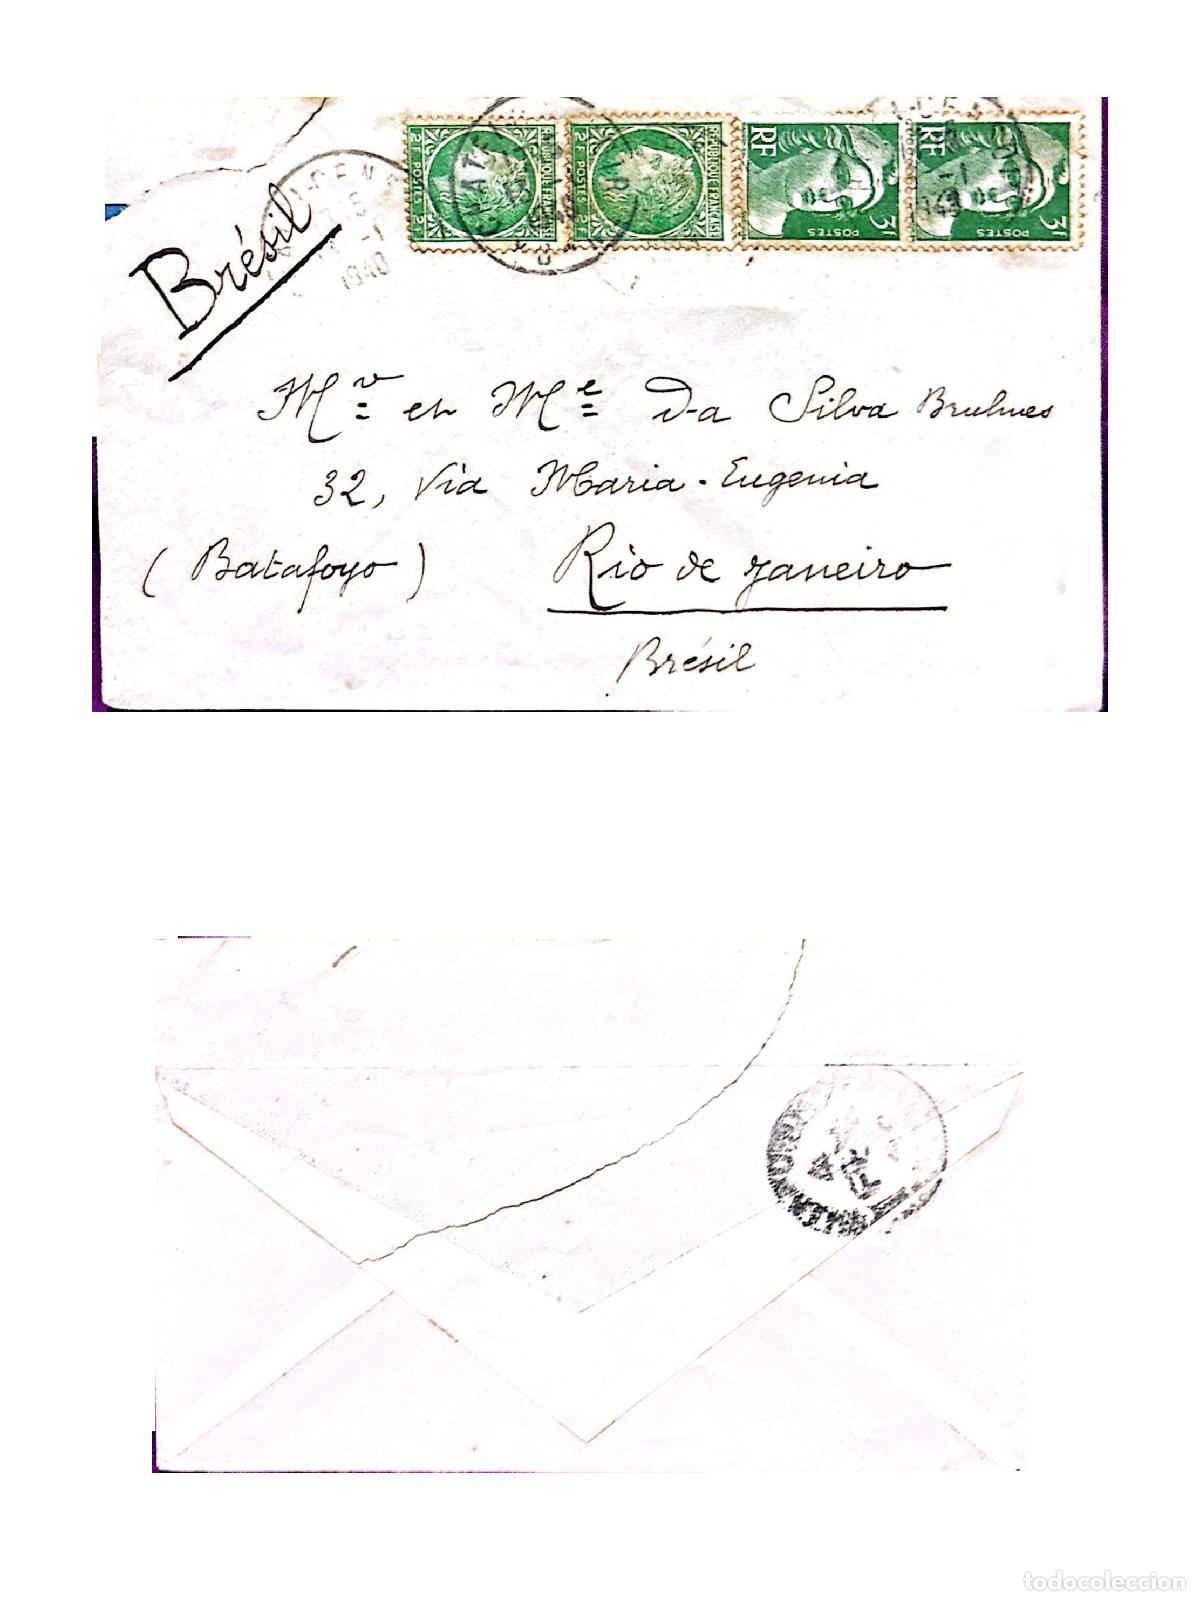 Brésil
RÉPUBLIQUE FRANÇAISE
2F POSTES 2F
RÉPUBLIQUE FRANÇAISE
2F POSTES 2F
RF
POSTES
3F
RF
POSTES
3F
Mr et Me Da Silva Bruhnes
32, Via Maria-Eugenia
(Batafoyo) Rio de Janeiro
Brésil
todocoleccion